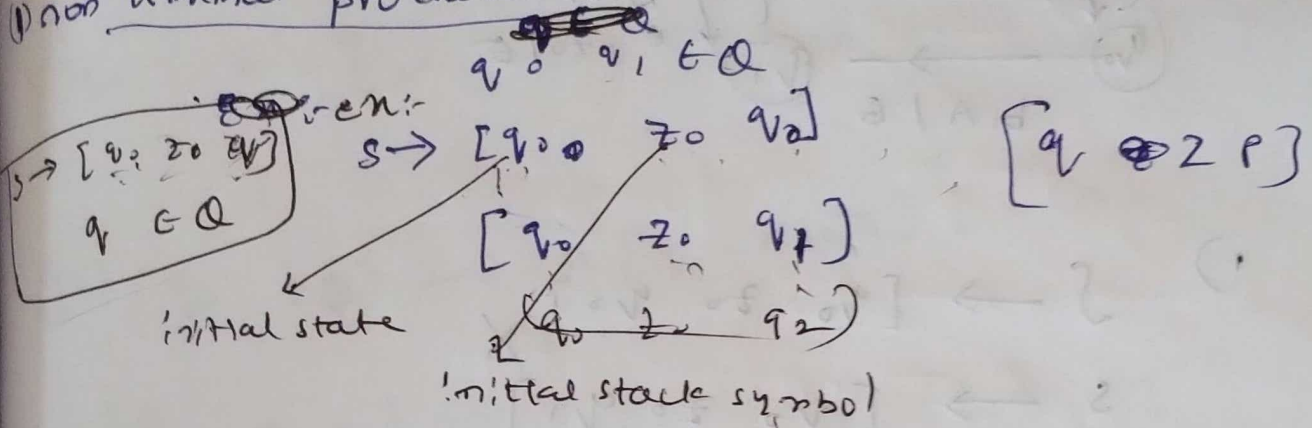 ① non
q0 q1 ∈ Q
:- ex:-
S → [q0 z0 q]
q ∈ Q
S → [q0 z0 q0]
[q0 z0 q1]
(q0 z0 q2)
[q z p]
initial state
initial stack symbol